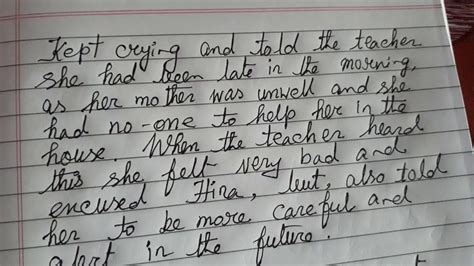 Kept crying and told the teacher
she had been late in the morning,
as her mother was unwell and she
had no-one to help her in the
house. When the teacher heard
this she felt very bad and
excused Hira, but, also told
her to be more careful and
alert in the future.